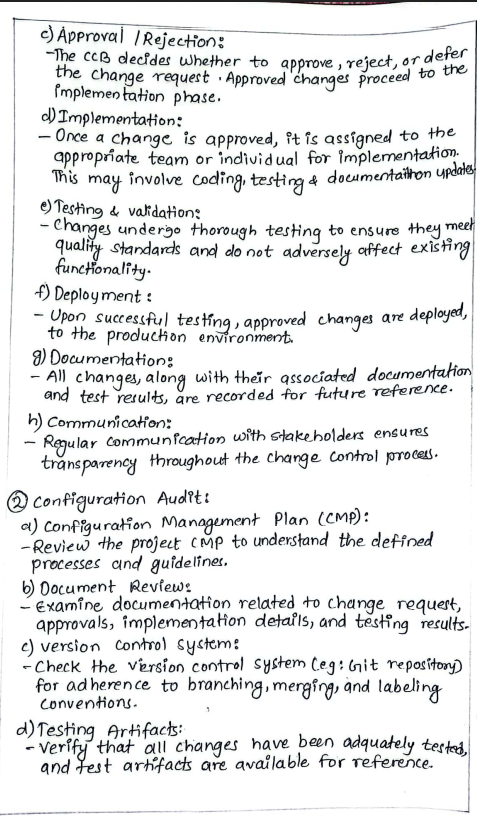 c) Approval / Rejection:
- The CCB decides whether to approve, reject, or defer
the change request. Approved changes proceed to the
implementation phase.
d) Implementation:
- Once a change is approved, it is assigned to the
appropriate team or individual for implementation.
This may involve coding, testing & documentaithon updates
e) Testing & validation:
- Changes undergo thorough testing to ensure they meet
quality standards and do not adversely affect existing
functionality.
f) Deployment :
- Upon successful testing, approved changes are deployed,
to the production environment.
g) Documentation:
- All changes, along with their associated documentation
and test results, are recorded for future reference.
h) Communication:
- Regular communication with stakeholders ensures
transparency throughout the change control process.
② Configuration Audit:
a) Configuration Management Plan (CMP):
- Review the project CMP to understand the defined
processes and guidelines.
b) Document Review:
- Examine documentation related to change request,
approvals, implementation details, and testing results.
c) version control system:
- Check the version control system (eg: Git repository)
for adherence to branching, merging, and labeling
conventions.
d) Testing Artifacts:
- Verify that all changes have been adquately tested,
and test artifacts are available for reference.